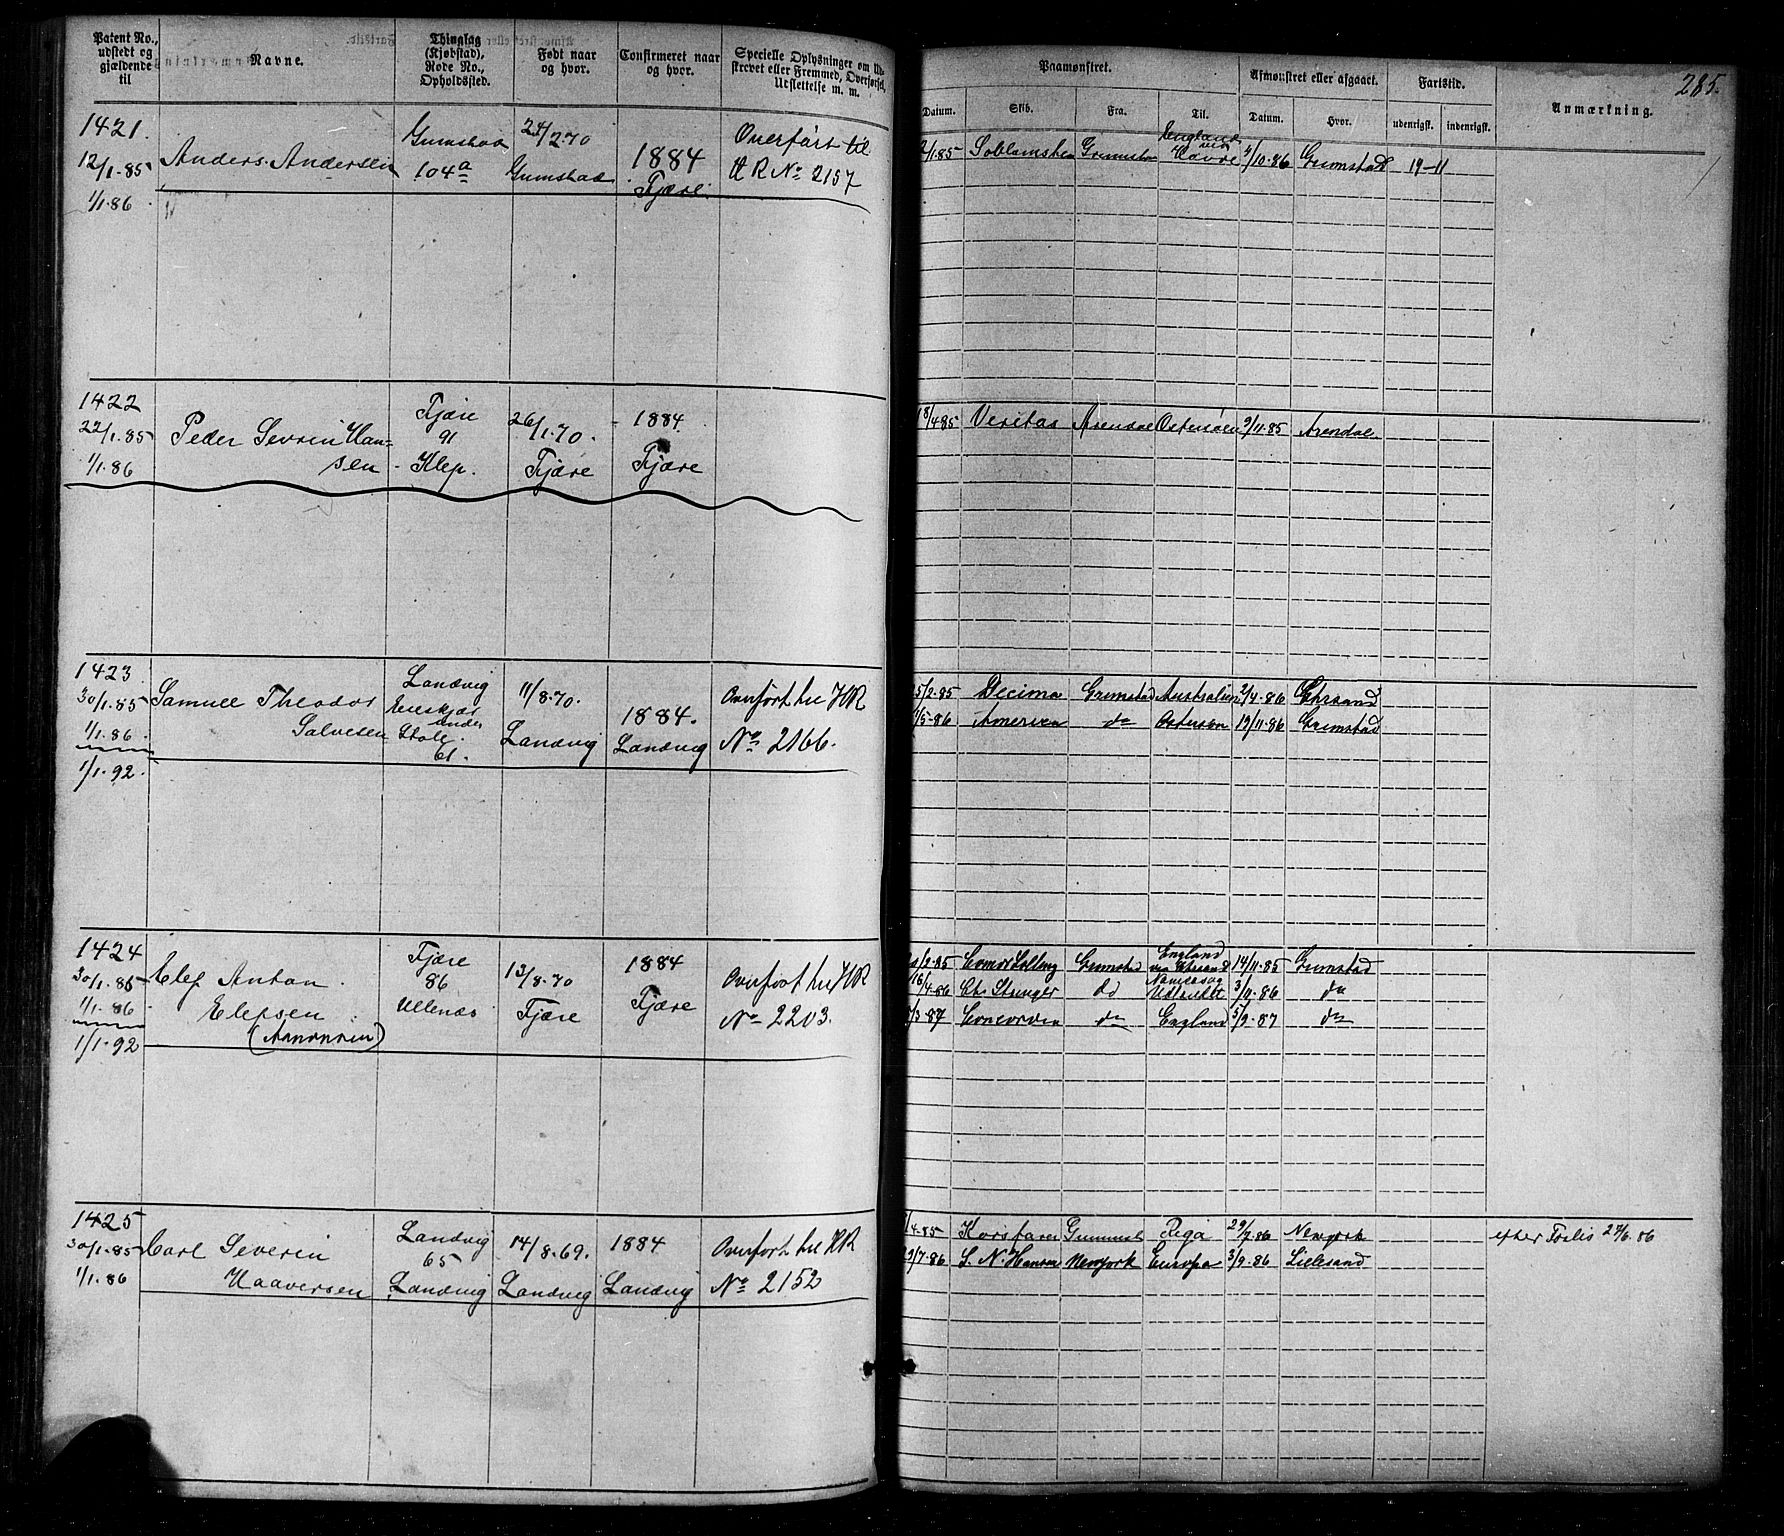 Patent No., udstedt og gjældende til
Navne.
Thinglag (Kjøbstad), Rode No., Opholdssted.
Født naar og hvor.
Confirmeret naar og hvor.
Specielle Oplysninger om Ud-
skrevet eller Fremmed, Overførsel,
Udslettelse m. m.
Paamønstret.
Datum.
Skib.
Fra.
Til.
Afmønstret eller afgaaet.
Datum.
Hvor.
Fartstid.
udenrigsk.
indenrigsk.
Anmærkning.
285.
1421.
12/1.85
1/1.86
Anders Andersen
Grimstad
104a
24/2.70
Grimstad
1884
Fjære.
Overført til
HR No 2157
2/1.85
Grimstad
England
via
Havre
4/10.86
Grimstad
19-11
1422
22/1.85
1/1.86
Peder Severin Han-
sen
Fjære
91
Klep.
26/1.70.
Fjære
1884.
Fjære
18/4 85
Veritas
Arendal
Østersøen
2/11.85
Arendal
1423
30/1.85
1/1.86
1/1.92.
Samuel Theodor
Salvesen
Landvig
under
Stole
61.
11/8.70.
Landvig
1884.
Landvig
Overført til HR
No 2166.
5/2.85
Decima
Grimstad
Australien
2/4.86
Chrsand
1/5.86
America
do
Østersøen
19/11.86
Grimstad
1424
30/1.85
1/1.86
1/1.92
Elef Anton
Elefsen
(Aanonsen)
Fjære
86
Ullenæs
13/8.70
Fjære
1884
Fjære
Overført til HR
No 2203.
Grimstad
England
via Chrsand
14/11.85
Grimstad
16/4.86
do
Udlandet
3/11.86
do
/3.87
Concordia
do
England
5/9.87
do
1425
30/1.85
1/1.86
Carl Severin
Haaversen
Landvig
65
Landvig
14/8.69.
Landvig
1884
Landvig
Overført til HR
No 2152
/4.85
Korsfarer
Grimstad
Riga
29/7.86
Newyork
efter Forlis 27/6.86
29/7.86
S. N. Hansen
Newyork
Europa
3/9.86
Lillesand